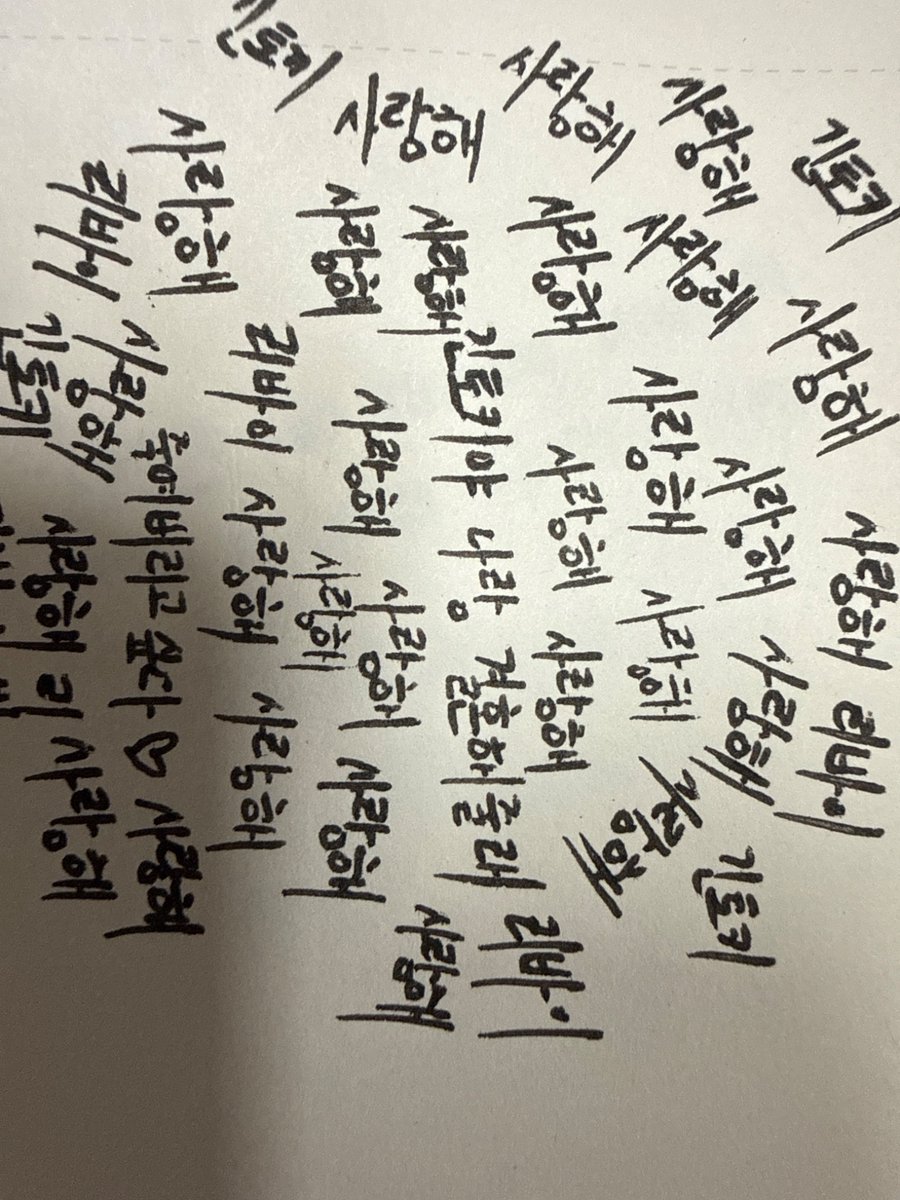 긴토키 사랑해 사랑해 리바이
사랑해 사랑해 사랑해 사랑해 긴토키
사랑해 사랑해 사랑해 사랑해 사랑해
사랑해 사랑해 리바이
사랑해 긴토키야 나랑 결혼해줄래
긴토키 사랑해 사랑해 사랑해 사랑해 사랑해
사랑해
사랑해 리바이 사랑해 사랑해
죽여버리고 싶다 ♡ 사랑해
리바이 사랑해
긴토키 사랑해 리 사랑해